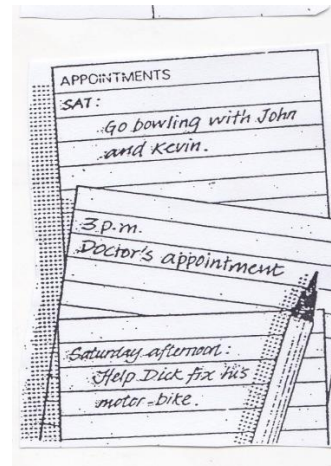 APPOINTMENTS
SAT:
Go bowling with John
and Kevin.
3 p.m.
Doctor's appointment
Saturday afternoon:
Help Dick fix his
motor-bike.